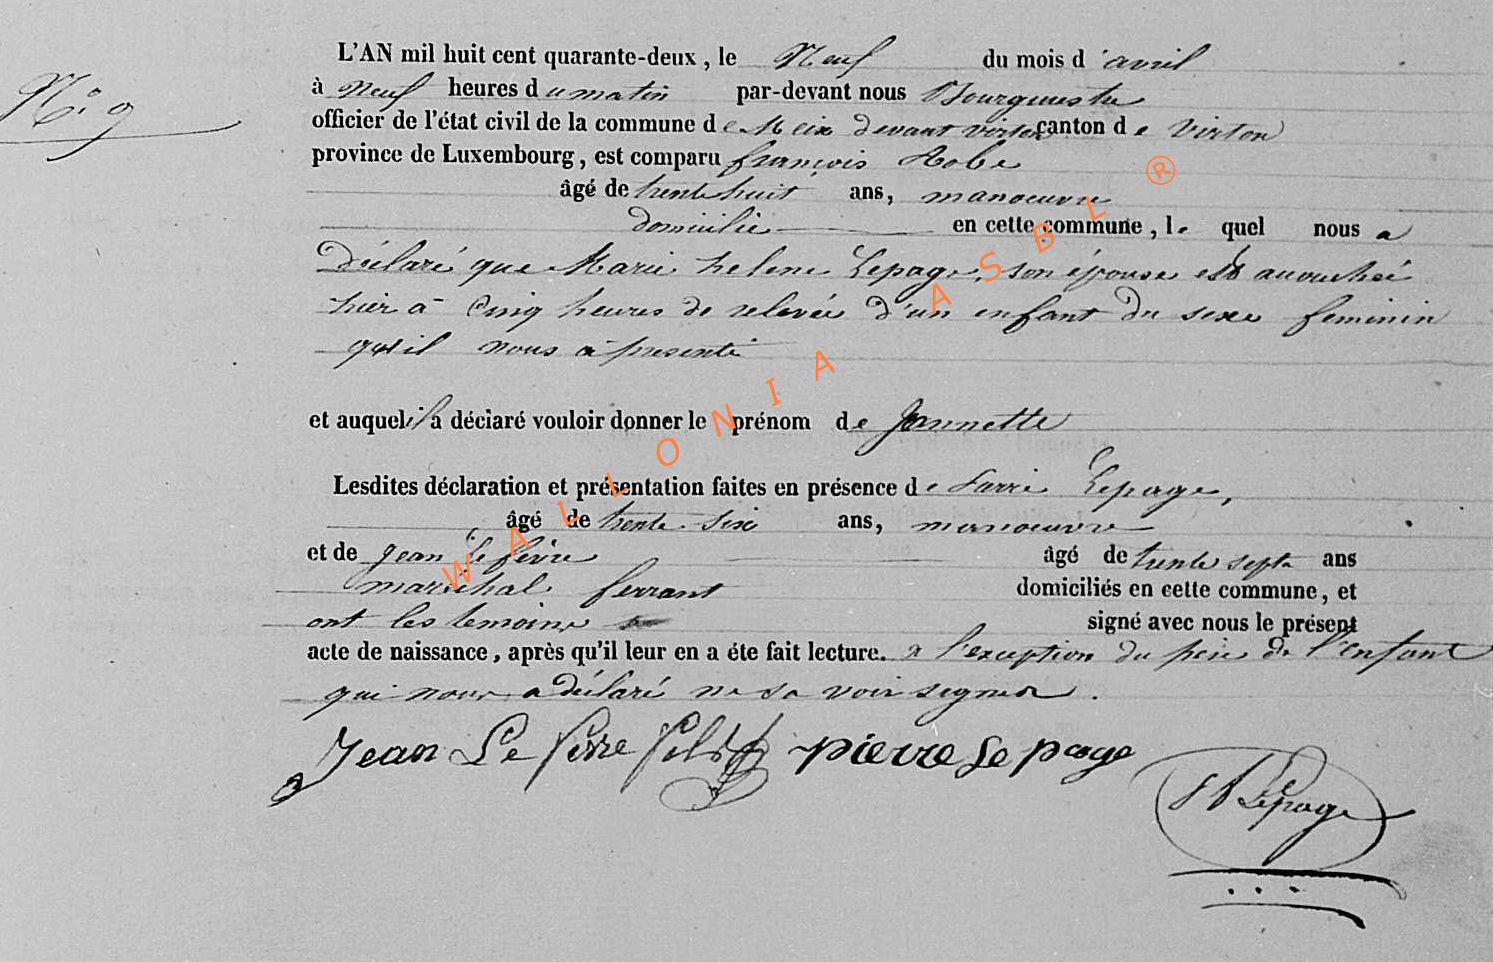 N.° 9
L'AN mil huit cent quarante-deux, le Neuf du mois d'avril
à Neuf heures du matin par-devant nous Bourguestre
officier de l'état civil de la commune de Meix devant virton canton de Virton
province de Luxembourg, est comparu françois Robe
âgé de trente huit ans, manoeuvre
domicilié en cette commune, le quel nous a
déclaré que Marie helene Lepage, son épouse est accouchée
hier à Cinq heures de relevée d'un enfant du sexe feminin
qu'il nous a presenté
et auquel il a déclaré vouloir donner le prénom de Jannette
Lesdites déclaration et présentation faites en présence de Lepage,
âgé de trente six ans, manoeuvre
et de Jean Lefevre âgé de trente sept ans
maréchal ferrant domiciliés en cette commune, et
ont les temoins signé avec nous le présent
acte de naissance, après qu'il leur en a éte fait lecture. a l'exception du père de l'enfant
qui nous a déclaré ne savoir signer.
Jean Le fevre fils pierre Le page
Lepage
WALLONIA ASBL ®